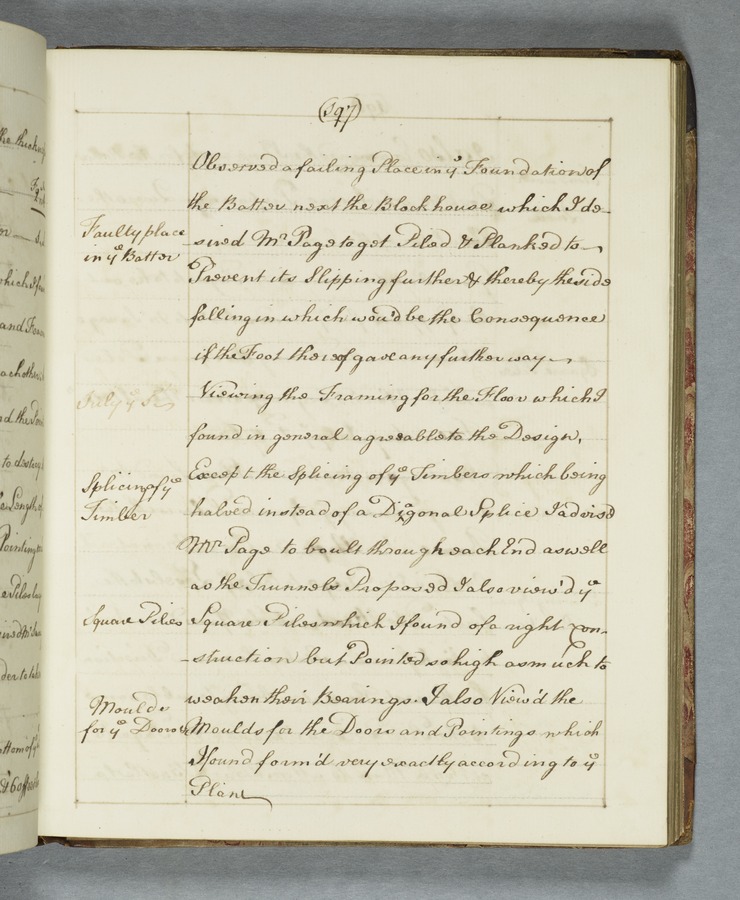 (197)
Observed a failing Place in yᵉ Foundation of
the Batter next the Block house which I de-
Faulty place
in yᵉ Batter
sired Mʳ Page to get Piled & Planked to
Prevent its Slipping further & thereby the side
falling in which wou'd be the Consequence
if the Foot thereof gave any further way
Viewing the Framing for the Floor which I
found in general agreeable to the Design,
Splicing of yᵉ
Timber
Except the Splicing of yᵉ Timbers which being
halved instead of a Digonal Splice I advised
Mʳ Page to boult through each End as well
as the Trunnels Proposed I also view'd yᵉ
Square Piles
Square Piles which I found of a right con-
struction but Pointed so high as much to
weaken their Bearings. I also View'd the
Moulds
for yᵉ Doors &
Moulds for the Doors and Pointings which
I found form'd very exactly according to yᵉ
Plan